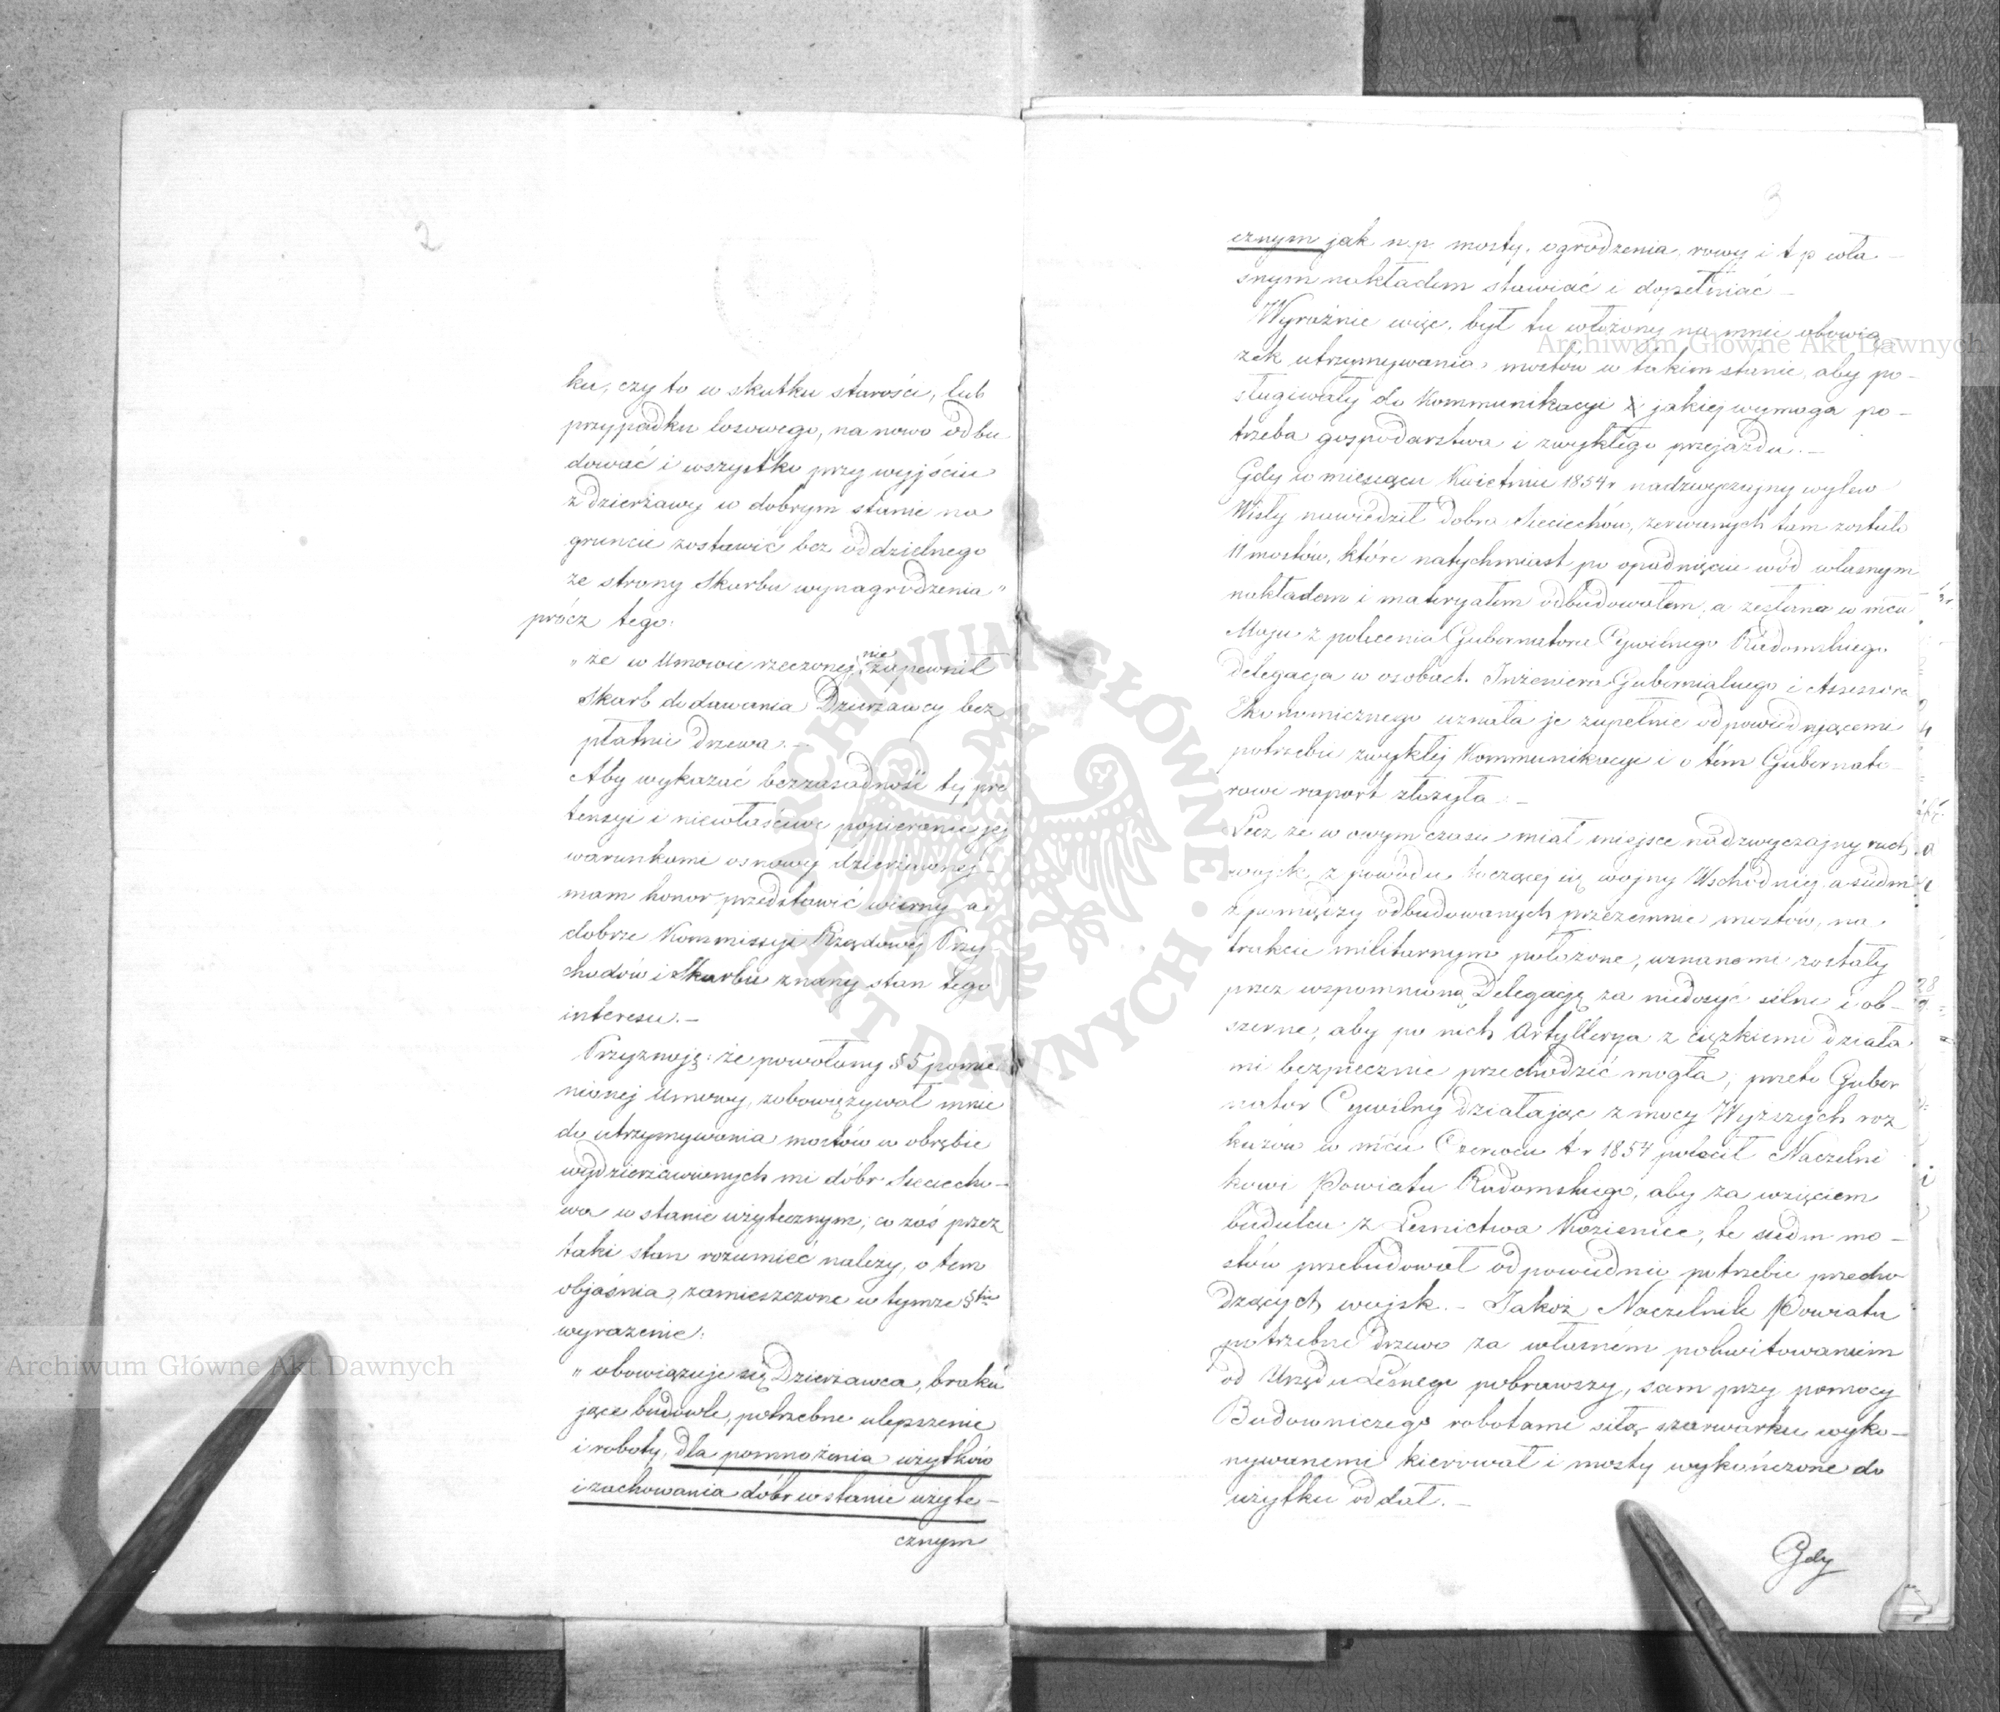 2
ku, czy to w skutku starości, lub
przypadku losowego, na nowo odbu
dować i wszystko przy wyjściu
z dzierżawy w dobrym stanie na
gruncie zostawić bez oddzielnego
ze strony Skarbu wynagrodzenia"
prócz tego:
„że w Umowie rzeczonej nie zapewnił
Skarb dodawania Dzierżawcy bez
płatnie drzewa.—
Aby wykazać bezzasadność tej pre
tensyi i niewłaściwe popieranie jej
warunkami osnowy dzierżawnej—
mam honor przedstawić wierny a
dobrze Kommissyi Rządowej Przy
chodów i Skarbu znany stan tego
interesu.—
Przyznaję: że powołany § 5 pomie
nionej Umowy, zobowiązywał mnie
do utrzymywania mostów w obrębie
wydzierżawionych mi dóbr Sieciecho—
wa w stanie użytecznym; co zaś przez
taki stan rozumieć należy, o tem
objaśnia, zamieszczone w tymże §fie
wyrażenie:
„obowiązuje się Dzierżawca, braku
jące budowle, potrzebne ulepszenie
i roboty, dla pomnożenia użytków
i zachowania dóbr w stanie użyte—
cznym
3
cznym jak n.p. mosty, ogrodzenia, rowy i t p wła—
snym nakładem stawiać i dopełniać—
Wyraźnie więc, był tu włożony na mnie obowią
zek utrzymywania mostów w takim stanie, aby po—
sługiwały do Kommunikacyi jakiej wymaga po—
trzeba gospodarstwa i zwykłego przejazdu.—
Gdy w miesiącu Kwietniu 1854 r nadzwyczajny wylew
Wisły nawiedził dobra Sieciechów, zerwanych tam zostało
11 mostów, które natychmiast po opadnięciu wód własnym
nakładem i materyałem odbudowałem, a zesłana w mcu
Maju z polecenia Gubernatora Cywilnego Radomskiego
Delegacja w osobach Inżeniera Gubernialnego i Assessora
Ekonomicznego uznała je zupełnie odpowiedniącemi
potrzebie zwykłej Kommunikacyi i o tém Gubernato—
rowi raport złożyła.—
Lecz że w owym czasie miał miejsce nadzwyczajny ruch
wojsk, z powodu toczącej się wojny Wschodniej, a siedm
z pomiędzy odbudowanych przezemnie mostów, na
trakcie militarnym położone, uznanemi zostały
przez wspomnioną Delegację za niedosyć silne i ob—
szerne, aby po nich Artyllerya z ciężkiemi działa
mi bezpiecznie przechodzić mogła; przeto Guber
nator Cywilny działając z mocy Wyższych roz
kazów w mcu Czerwcu t r 1854 polecił Naczelni
kowi Powiatu Radomskiego, aby za wzięciem
budulcu z Leśnictwa Kozienice, te siedm mo—
stów przebudował odpowiednio potrzebie przecho
dzących wojsk.— Jakoż Naczelnik Powiatu
potrzebne drzewo za własném pokwitowaniem
od Urzędu Leśnego pobrawszy, sam przy pomocy
Budowniczego robotami siłą szarwarku wyko—
nywanemi kierował i mosty wykończone do
użytku oddał.—
Gdy
Archiwum Główne Akt Dawnych
Archiwum Główne Akt Dawnych
ARCHIWUM GŁÓWNE · AKT DAWNYCH ·